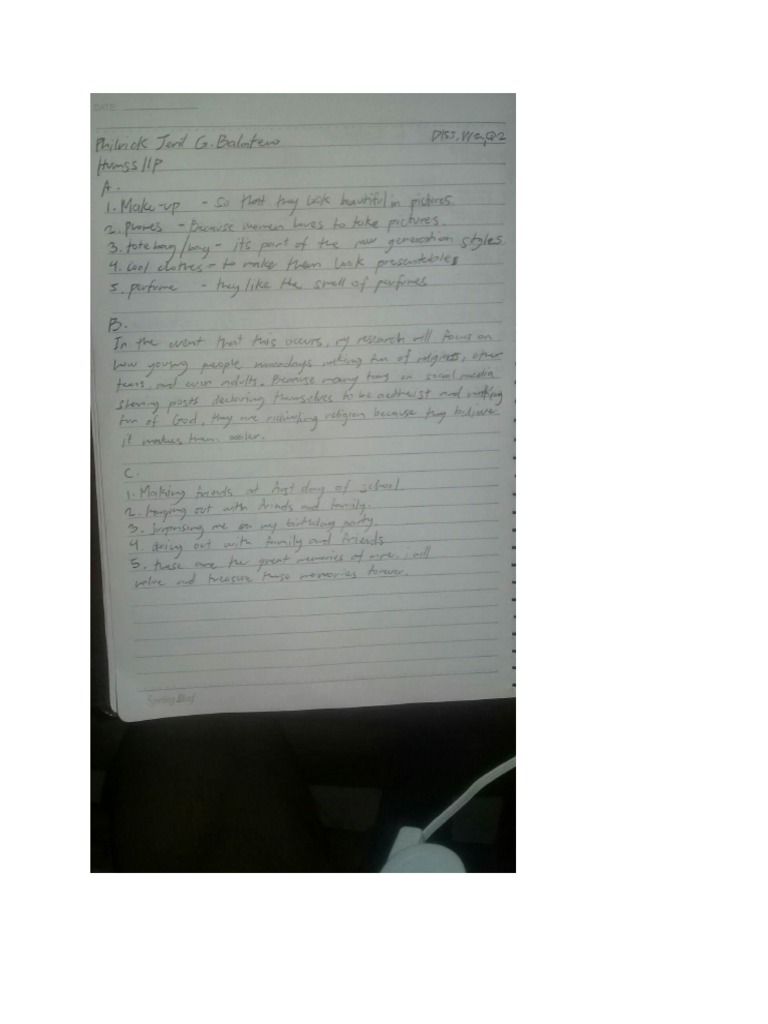 DATE:
Philrick Jerit G. Balintero DISS, W2, Q2
Humss 11P
A.
1. Make-up - So that they look beautiful in pictures.
2. phones - Because women loves to take pictures.
3. tote bag/bag - it's part of the new generation styles
4. cool clothes - to make them look presentables
5. perfume - they like the smell of perfumes
B.
In the event that this occurs, my research will focus on
how young people nowadays making fun of religions, other
teens, and even adults. Because many teens on social media
sharing posts declaring themselves to be and making
fun of God, they are religion because they believe
it makes them cooler.
C.
1. Making friends at first day of school.
2. hanging out with friends and family.
3. Surprising me on my birthday party.
4. going out with family and friends
5. these are the great memories of mine. i will
value and treasure these memories forever.